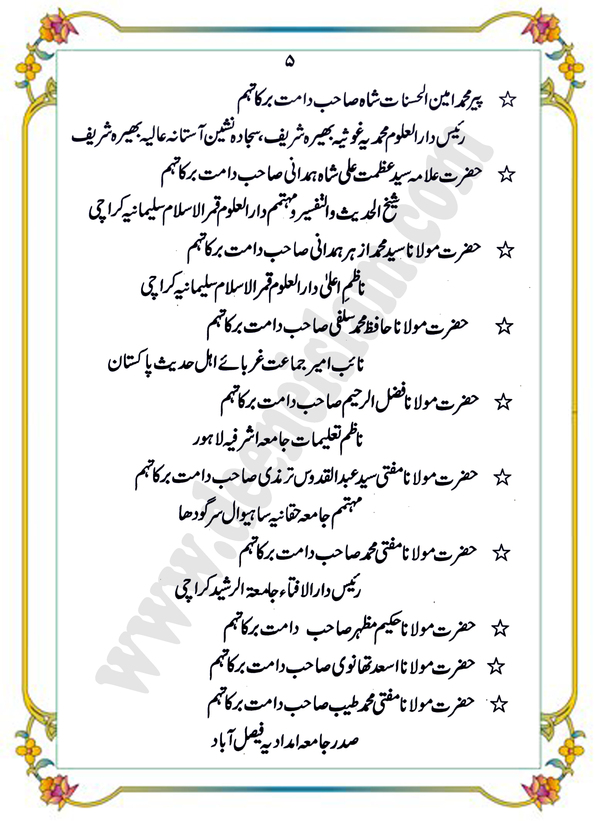 ۵
☆ پیر محمد امین الحسنات شاہ صاحب دامت برکاتہم
رئیس دارالعلوم محمدیہ غوثیہ بھیرہ شریف، سجادہ نشین آستانہ عالیہ بھیرہ شریف
☆ حضرت علامہ سید عظمت علی شاہ ہمدانی صاحب دامت برکاتہم
شیخ الحدیث والتفسیر و مہتمم دارالعلوم قمر الاسلام سلیمانیہ کراچی
☆ حضرت مولانا سید محمد ازہر ہمدانی صاحب دامت برکاتہم
ناظم اعلیٰ دارالعلوم قمر الاسلام سلیمانیہ کراچی
☆ حضرت مولانا حافظ محمد سلفی صاحب دامت برکاتہم
نائب امیر جماعت غربائے اہل حدیث پاکستان
☆ حضرت مولانا فضل الرحیم صاحب دامت برکاتہم
ناظم تعلیمات جامعہ اشرفیہ لاہور
☆ حضرت مولانا مفتی سید عبدالقدوس ترمذی صاحب دامت برکاتہم
مہتمم جامعہ حقانیہ ساہیوال سرگودھا
☆ حضرت مولانا مفتی محمد صاحب دامت برکاتہم
رئیس دارالافتاء جامعۃ الرشید کراچی
☆ حضرت مولانا حکیم مظہر صاحب دامت برکاتہم
☆ حضرت مولانا اسعد تھانوی صاحب دامت برکاتہم
☆ حضرت مولانا مفتی محمد طیب صاحب دامت برکاتہم
صدر جامعہ امدادیہ فیصل آباد
www.deeneislam.com